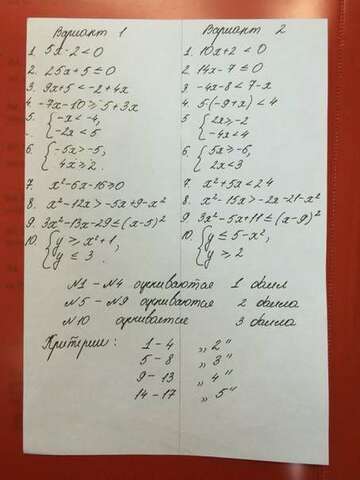 Вариант 1
1. 5x-2<0
2. 25x+5≤0
3. 9x+5<-2+4x
4. -7x-10≥5+3x
5. {-x<-4,
-2x<5
6. {-5x>-5,
4x≥2.
7. x²-6x-16≥0
8. x²-12x>-5x+9-x²
9. 3x²-13x-29≤(x-5)²
10. {y≥x²+1,
y≤3.
Вариант 2
1. 10x+2<0
2. 14x-7≤0
3. -4x-8<7-x
4. 5(-9+x)<4
5. {2x≥-2,
-4x<4
6. {5x≥-6,
2x<3
7. x²+5x<24
8. x²-15x>-2x-21-x²
9. 3x²-5x+11≤(x-9)²
10. {y≤5-x²,
y≥2
N1-N4 оцениваются 1 балл
N5-N9 оцениваются 2 балла
N10 оценивается 3 балла
Критерии: 1-4 „2"
5-8 „3"
9-13 „4"
14-17 „5"